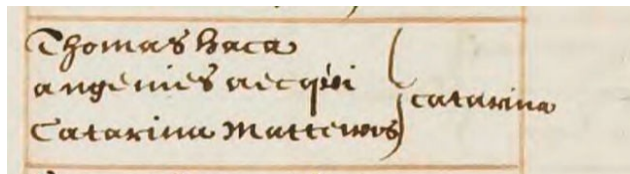 Thomas baca
angenies aecqui
Catarina Mattewos
Catarina